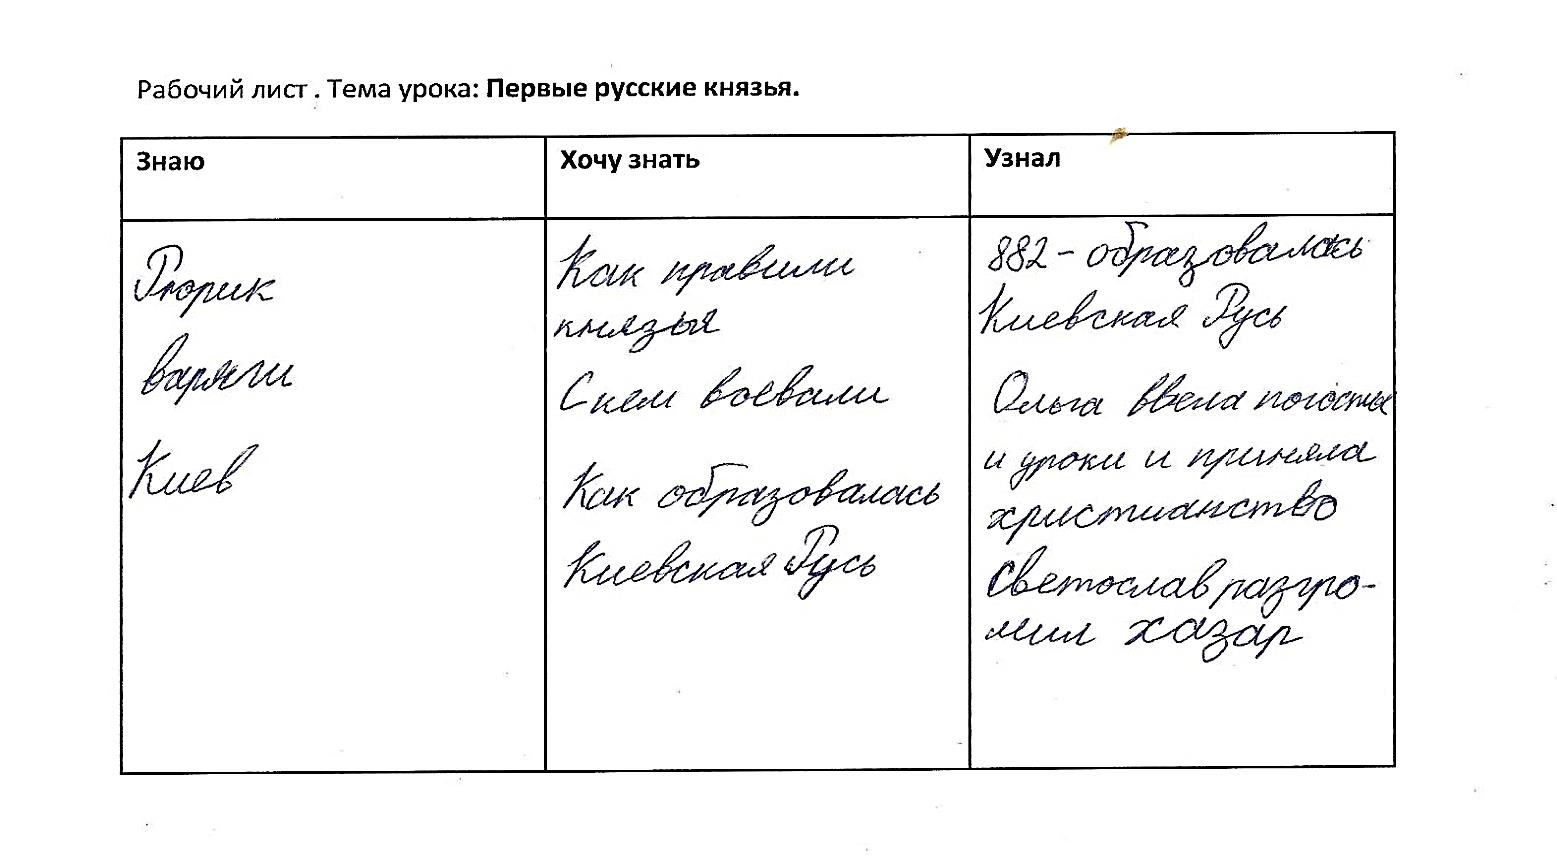 Рабочий лист . Тема урока: Первые русские князья.
Знаю
Хочу знать
Узнал
Рюрик
варяги
Киев
Как правили
князья
С кем воевали
Как образовалась
Киевская Русь
882 – образовалась
Киевская Русь
Ольга ввела погосты
и уроки и приняла
христианство
Светослав разгро-
мил хазар